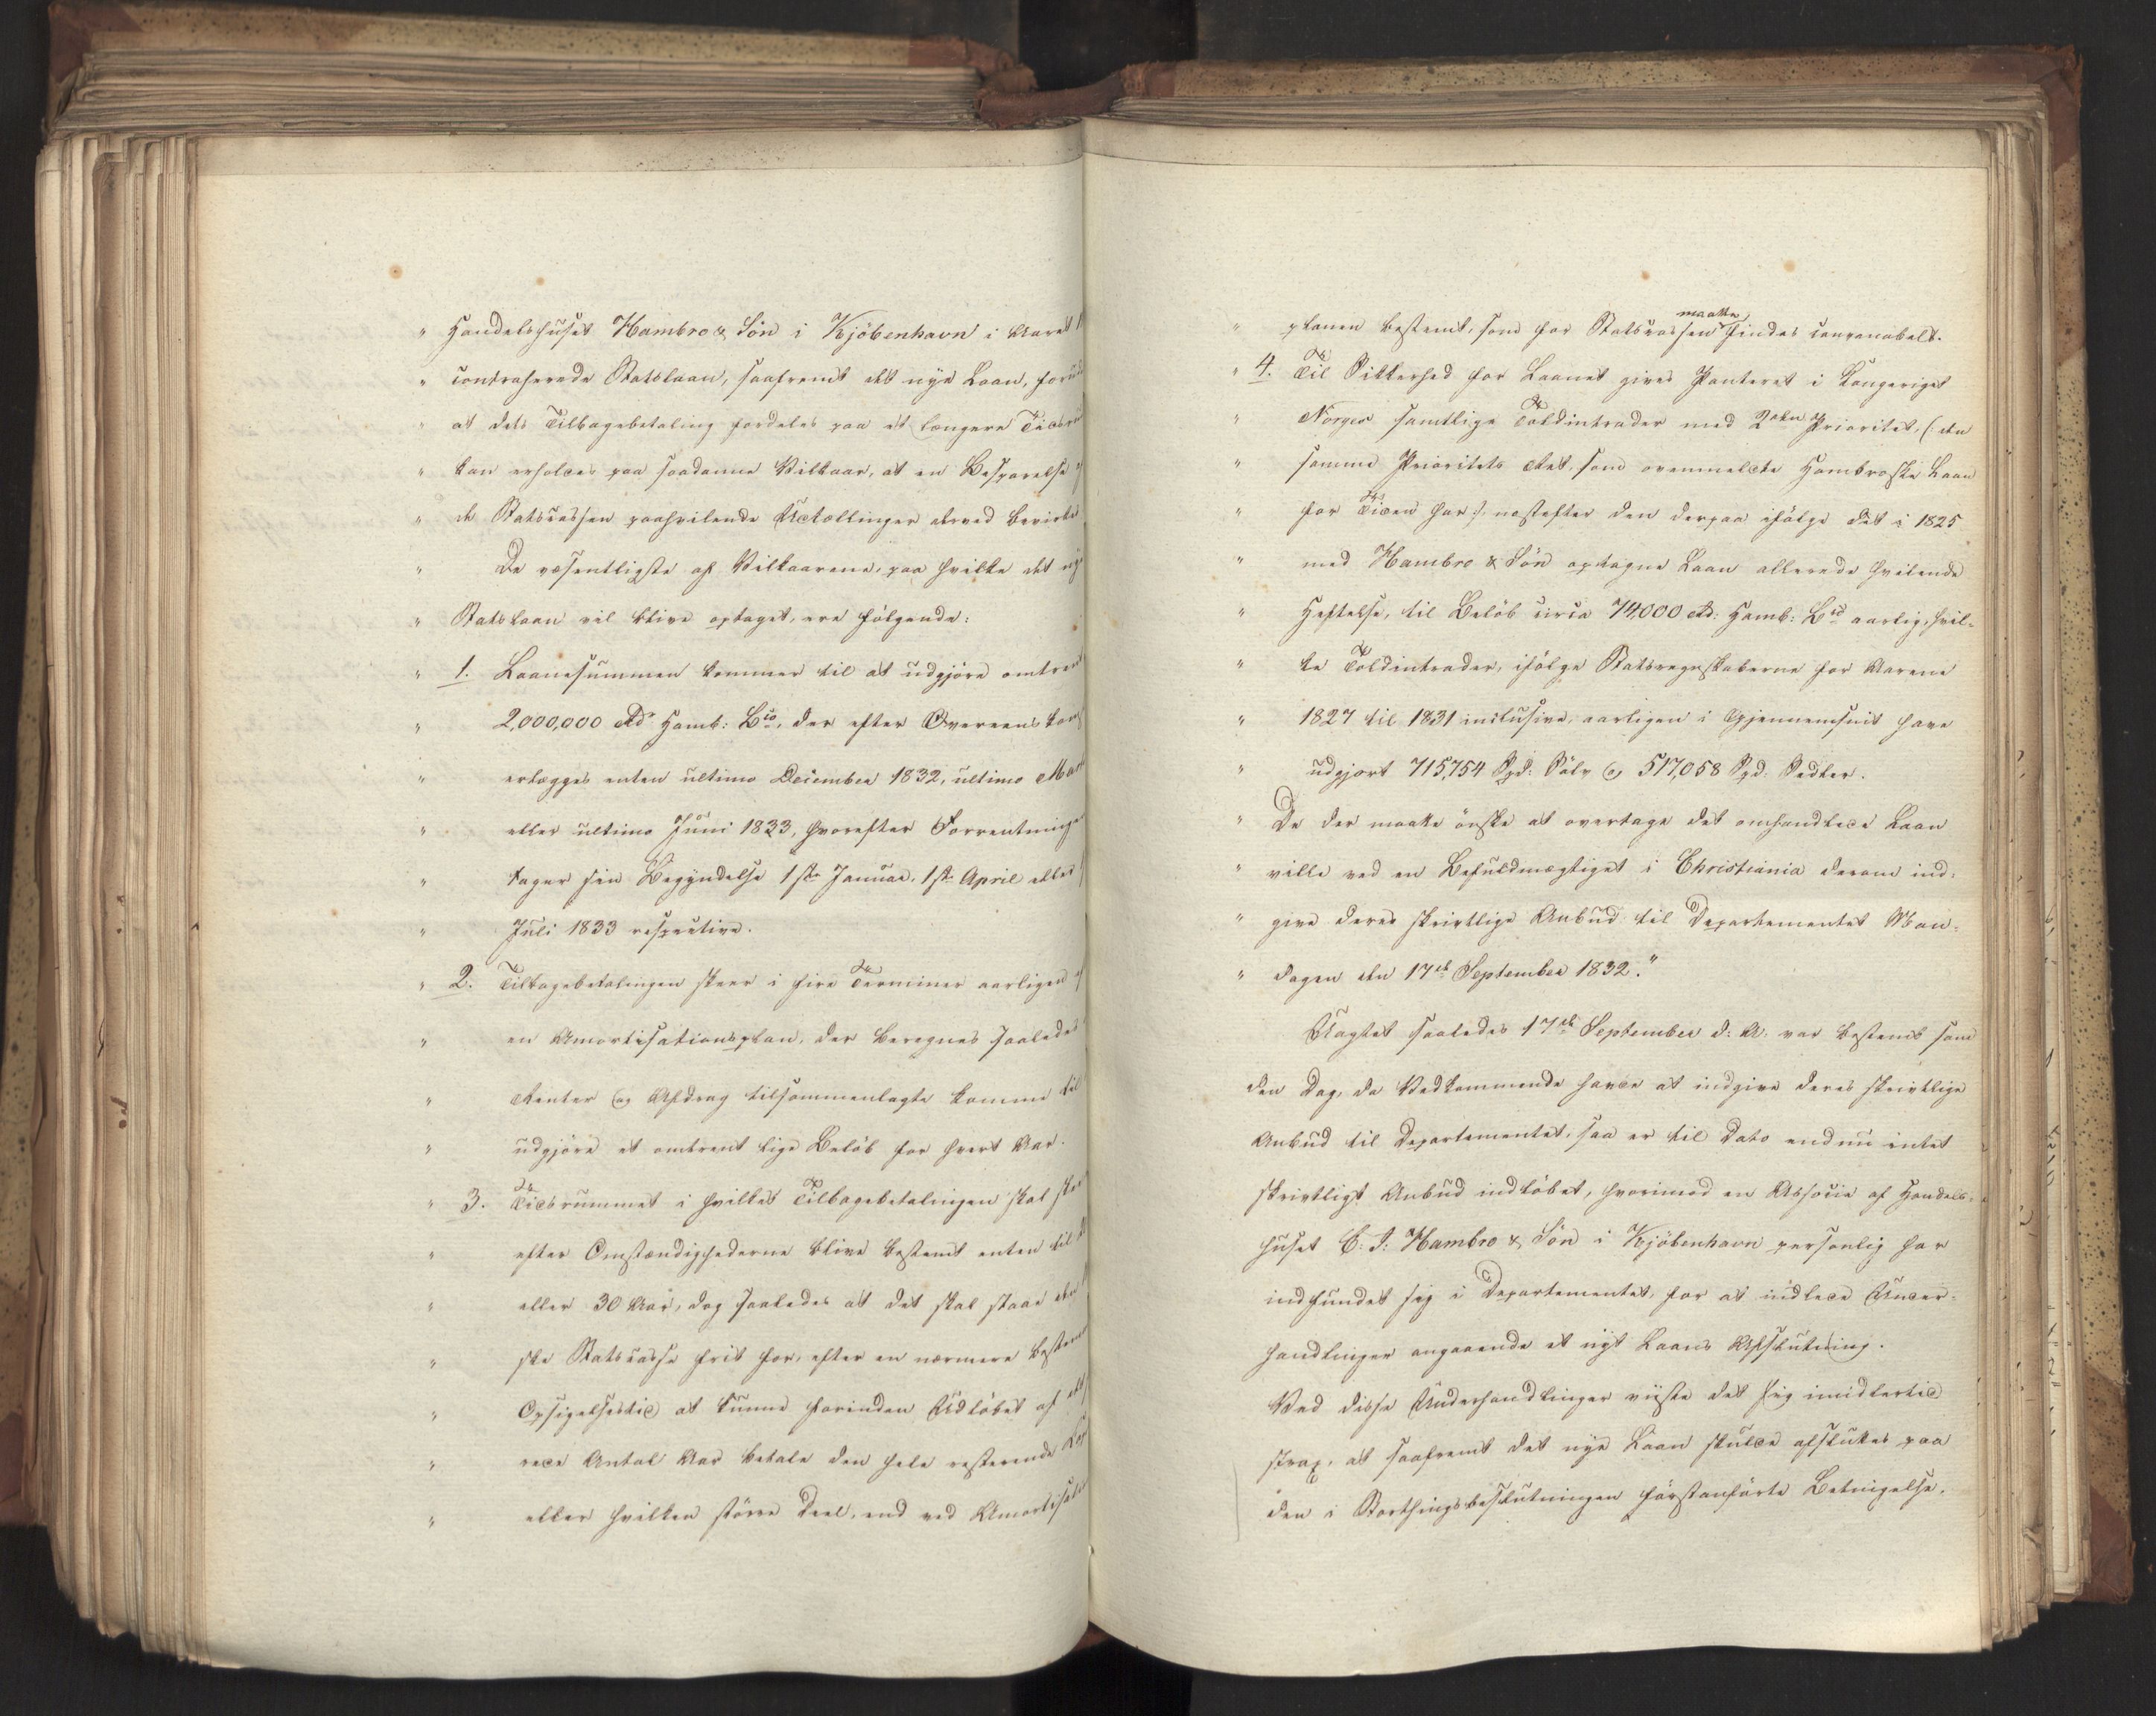 " Handelshuset Hambro & Sön i Kjöbenhavn i Aaret
" contraherede Statslaan, saafremt det nye Laan, foruden
" at dets Tilbagebetaling fordeles paa et længere Tidsrum
" kan erholdes paa saadanne Vilkaar, at en Besparelse
" de Statscassen paahvilende Udtællinger derved bevirkes
" De væsentligste af Vilkaarene, paa hvilke det nye
" Statslaan vil blive optaget, ere følgende:
" 1. Laanesummen kommer til at udgjöre omtrent
" 2,000,000 Rd. Hamb: Bco, der efter Overeenskomst
" erlægges enten ultimo December 1832, ultimo Marts
" eller ultimo Juni 1833, hvorefter Forrentningen
" tager sin Begyndelse 1ste Januar, 1ste April eller
" Juli 1833 respective.
" 2. Tilbagebetalingen skeer i fire Terminer aarligen
" en Amortisationsplan, der beregnes saaledes
" Renter og Afdrag tilsammenlagte komme til
" udgjöre et omtrent lige Belöb for hvert Aar.
" 3. Tidsrummet i hvilket Tilbagebetalingen skal skee
" efter Omstændighederne blive bestemt enten til
" eller 30 Aar, dog saaledes at det skal staae den
" ske Statscasse frit for, efter en nærmere bestemt
" Opsigelsestid at kunne forinden Udlöbet af
" rede Antal Aar betale den hele resterende
" eller hvilken större Deel, end ved Amortisations
" planen bestemt, som for Statscassen maatte findes convenabelt.
" 4. Til Sikkerhed for Laanet gives Panteret i Kongeriget
" Norges samtlige Toldintrader med 2den Prioritet, (: den
" samme Prioritets Ret, som ovenmeldte Hambroske Laan
" for Tiden har :). næstefter den derpaa ifölge det i 1825
" med Hambro & Sön optagne Laan allerede hvilende
" Heftelse, til Belöb circa 74,000 Rd: Hamb: Bco aarlig, hvil-
" ke Toldintrader, ifölge Statsregnskaberne for Aarene
" 1827 til 1831 inclusive, aarligen i Gjennemsnit have
" udgjort 715,754 Spd: Sölv og 517,058 Spd: Sedler.
" De der maatte önske at overtage det omhandlede Laan
" ville ved en Befuldmægtiget i Christiania derom ind-
" give deres skrivtlige Anbud til Departementet Man-
" dagen den 17de September 1832."
Uagtet saaledes 17de September d: A. var bestemt som
den Dag, da Vedkommende havde at indgive deres skrivtlige
Anbud til Departementet, saa er til Dato endnu intet
skrivtligt Anbud indlöbet, hvorimod en Associe af Handels-
huset C: J: Hambro & Sön i Kjöbenhavn personlig har
indfundet sig i Departementet, for at indlede Under-
handlinger angaaende et nyt Laans Afslutning.
Ved disse Underhandlinger viiste det sig imidlertid
strax, at saafremt det nye Laan skulde afsluttes paa
den i Storthingsbeslutningen förstanförte Betingelse,